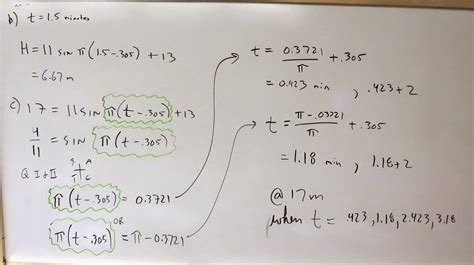 b) t = 1.5 minutes
H = 11 sin π(1.5-.305) + 13
= 6.67 m
c) 17 = 11 sin π(t-.305) + 13
4/11 = sin π(t-.305)
Q I + II S A T C
π(t-.305) = 0.3721
OR
π(t-.305) = π - 0.3721
t = 0.3721/π + .305
= 0.423 min , .423+2
t = π - .03721/π + .305
= 1.18 min , 1.18+2
@ 17m
when t = .423, 1.18, 2.423, 3.18